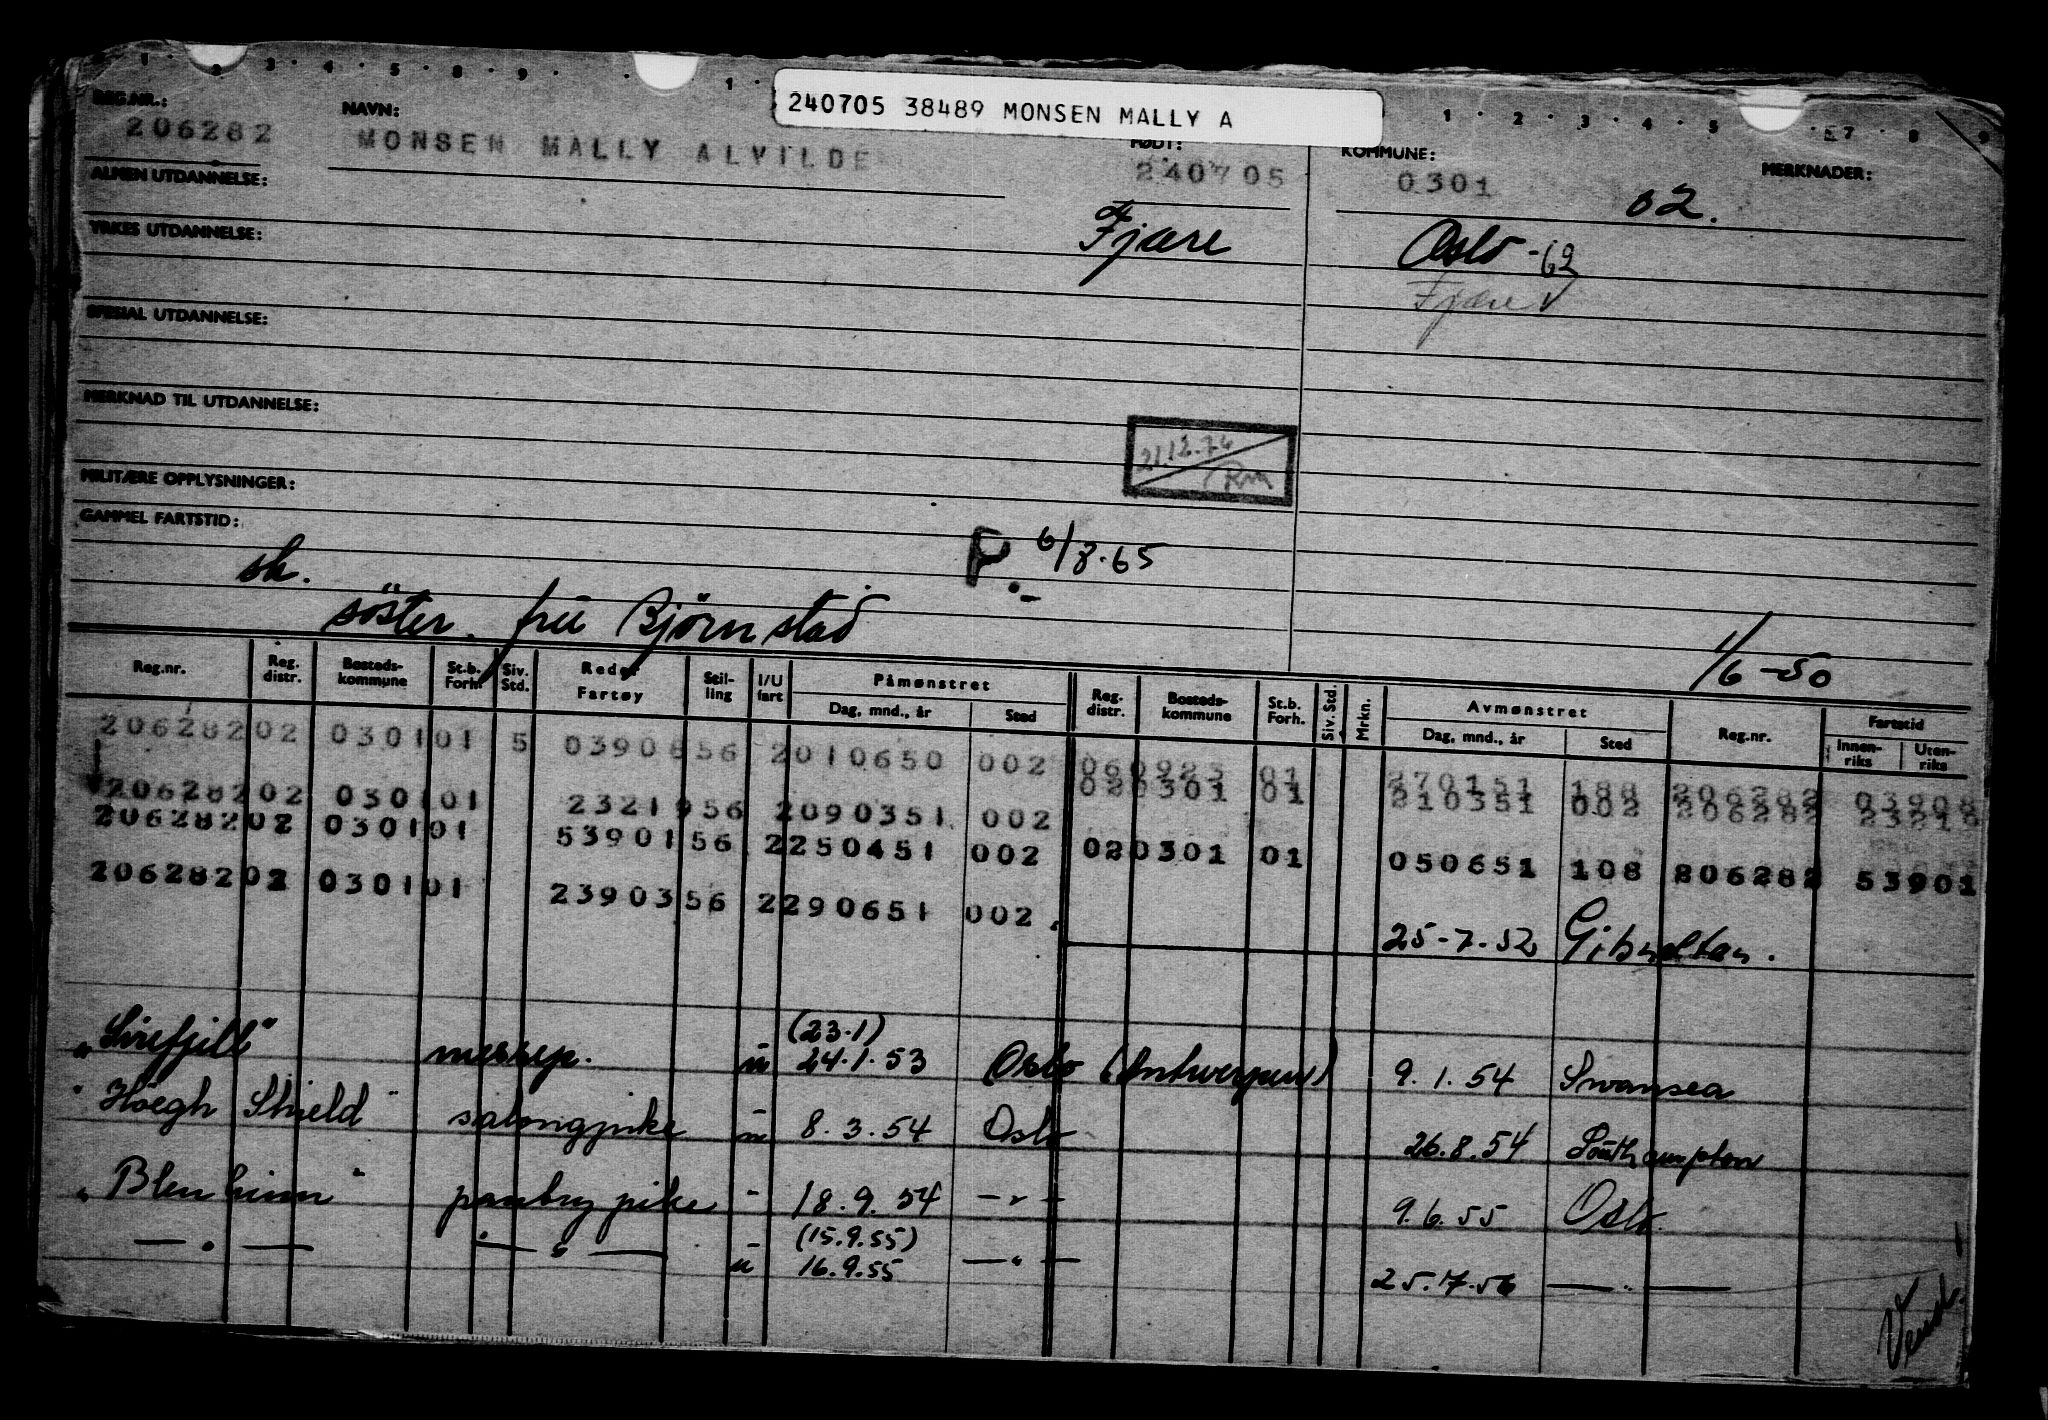 240705 38489 MONSEN MALLY A
REG.NR.: NAVN: FØDT: KOMMUNE: MERKNADER:
206282 MONSEN MALLY ALVILDE 240705 0301 02.
ALMEN UTDANNELSE:
Fjære Oslo -62
YRKES UTDANNELSE:
Fjære
SPESIAL UTDANNELSE:
MERKNAD TIL UTDANNELSE:
21.12.74
MILITÆRE OPPLYSNINGER:
GAMMEL FARTSTID:
sk. P. 6/8.65
söster. fru Bjørnstad 1/6-50
Reg.nr. Reg. distr. Bosteds-kommune St.b. Forh. Siv. Std. Reder Fartøy Stil-ling I/U fart Påmønstret Dag, mnd., år Sted Reg. distr. Bosteds-kommune St.b. Forh. Siv. Std. Mrkn. Avmønstret Dag, mnd., år Sted Reg.nr. Fartstid Innen-riks Uten-riks
206282 02 0301 01 5 0390 56 2 010650 002 270151 188 206282
206282 02 0301 01 2321 56 2 090351 002 02 0301 01 210351 002 206282
206282 02 0301 01 5390 1 56 2 250451 002 02 0301 01 050651 108 206282 53901
206282 02 0301 01 2390 3 56 2 290651 002.
25-7-52 Gibraltar.
(23.1)
"Sirefjell" messep. u 24.1.53 Oslo (Antwerpen) 9.1.54 Swansea
"Höegh Shield" salongpike u 8.3.54 Oslo 26.8.54 Southampton
"Blenheim" pantrypike - 18.9.54 — " — 9.6.55 Oslo.
(15.9.55)
— " — — " — u 16.9.55 — " — 25.7.56 — " —
Vend.